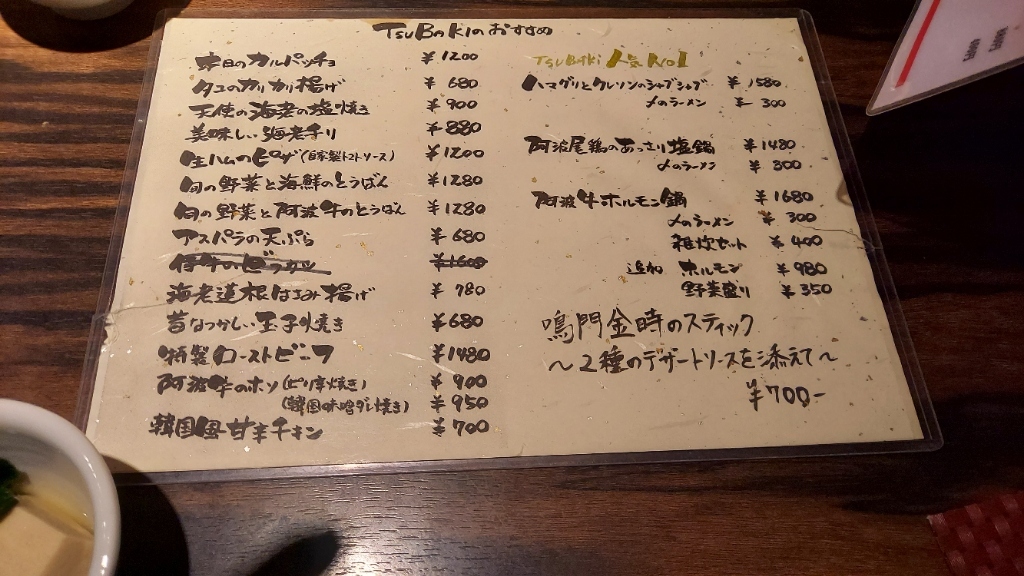 TSUBaKIのおすすめ
本日のカルパッチョ ¥1200
タコのカリカリ揚げ ¥680
天使の海老の塩焼き ¥900
美味しい海老チリ ¥880
生ハムのピザ(自家製トマトソース) ¥1200
旬の野菜と海鮮のとうばん ¥1280
旬の野菜と阿波牛のとうばん ¥1280
アスパラの天ぷら ¥680
¥1600
海老蓮根はさみ揚げ ¥780
昔なつかしい玉子焼き ¥680
特製ローストビーフ ¥1480
阿波牛のホソ(ピリ辛焼き) ¥900
(韓国味噌ダレ焼き) ¥950
韓国風甘辛チキン ¥700
TSUBAKI 人気No1
ハマグリとクレソンのシャブシャブ ¥1580
〆のラーメン ¥300
阿波尾鶏のあっさり塩鍋 ¥1480
〆のラーメン ¥300
阿波牛ホルモン鍋 ¥1680
〆のラーメン ¥300
雑炊セット ¥400
追加 ホルモン ¥980
野菜盛り ¥350
鳴門金時のスティック
〜2種のデザートソースを添えて〜
¥700-